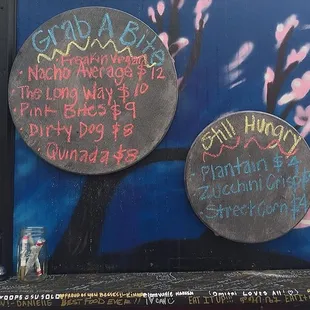 Grab A Bite
Freakin Vegan
Nacho Average $12
The Long Way $10
Pink Bites $9
Dirty Dog $8
Quinada $8
Still Hungry
Plantain $4
Zucchini Crisp
Street Corn $4